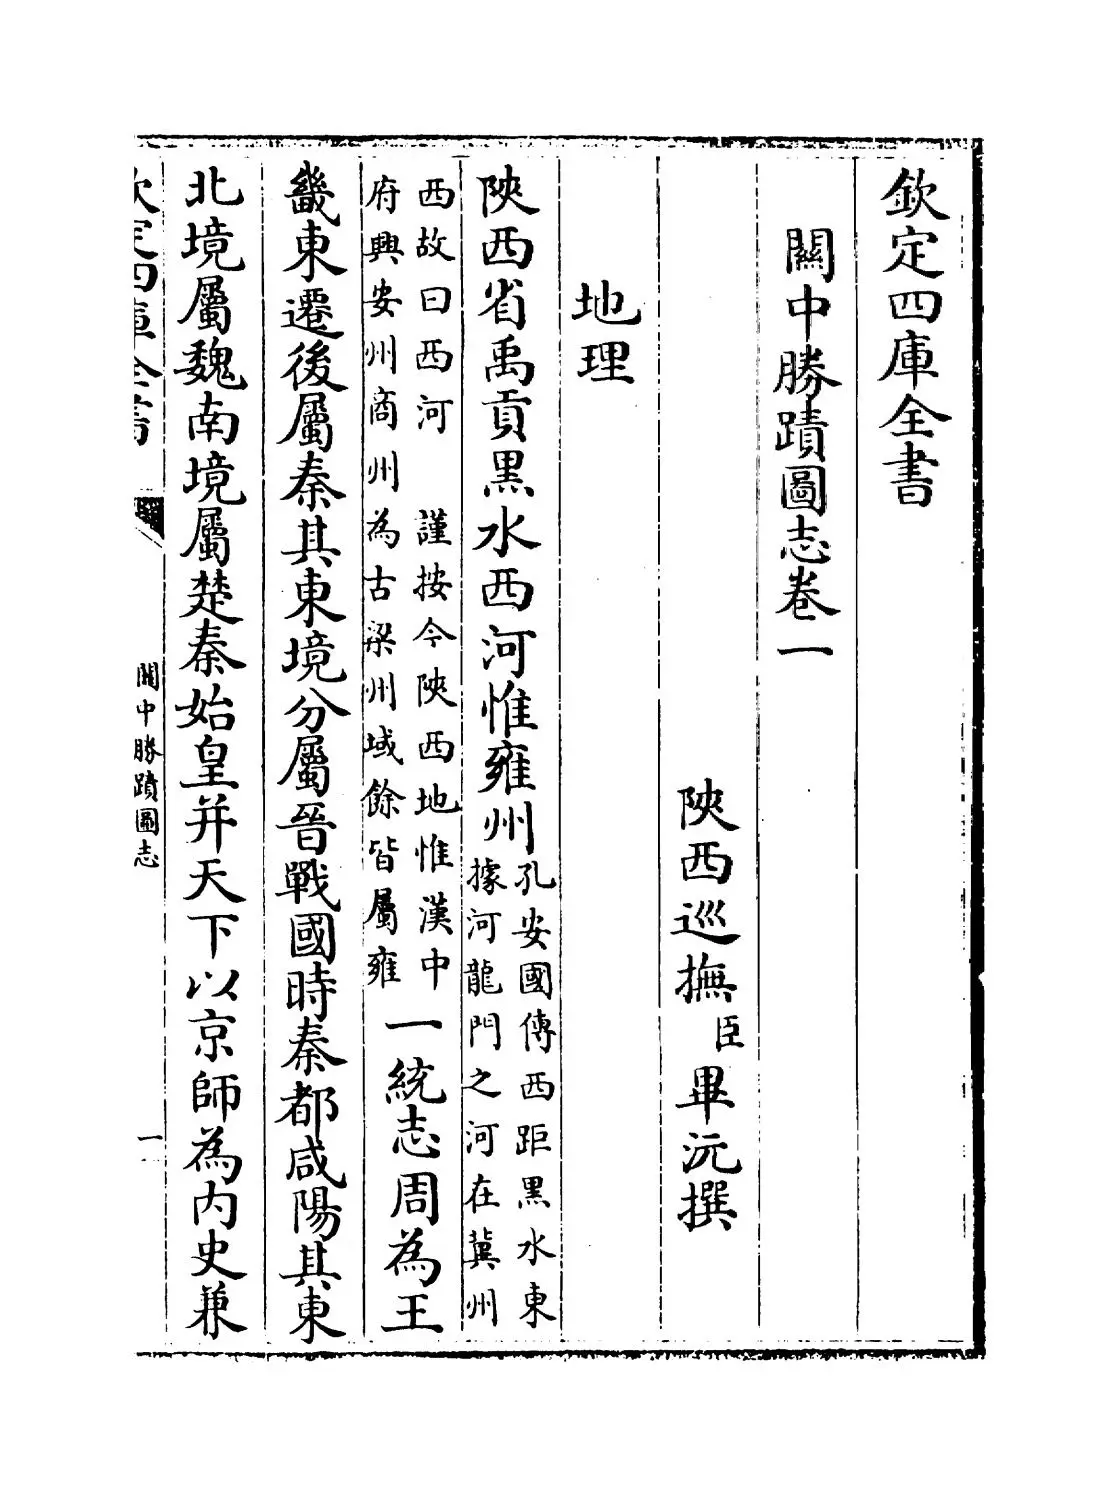 欽定四庫全書
關中勝蹟圖志卷一
陜西巡撫臣畢沅撰
地理
陜西省禹貢黒水西河惟雍州孔安國傳西距黒水東
據河龍門之河在冀州
西故曰西河　謹按今陜西地惟漢中
府興安州商州為古梁州域餘皆屬雍
一統志周為王
畿東遷後屬秦其東境分屬晉戰國時秦都咸陽其東
北境屬魏南境屬楚秦始皇并天下以京師為内史兼
欽定四庫全書
關中勝蹟圖志
一